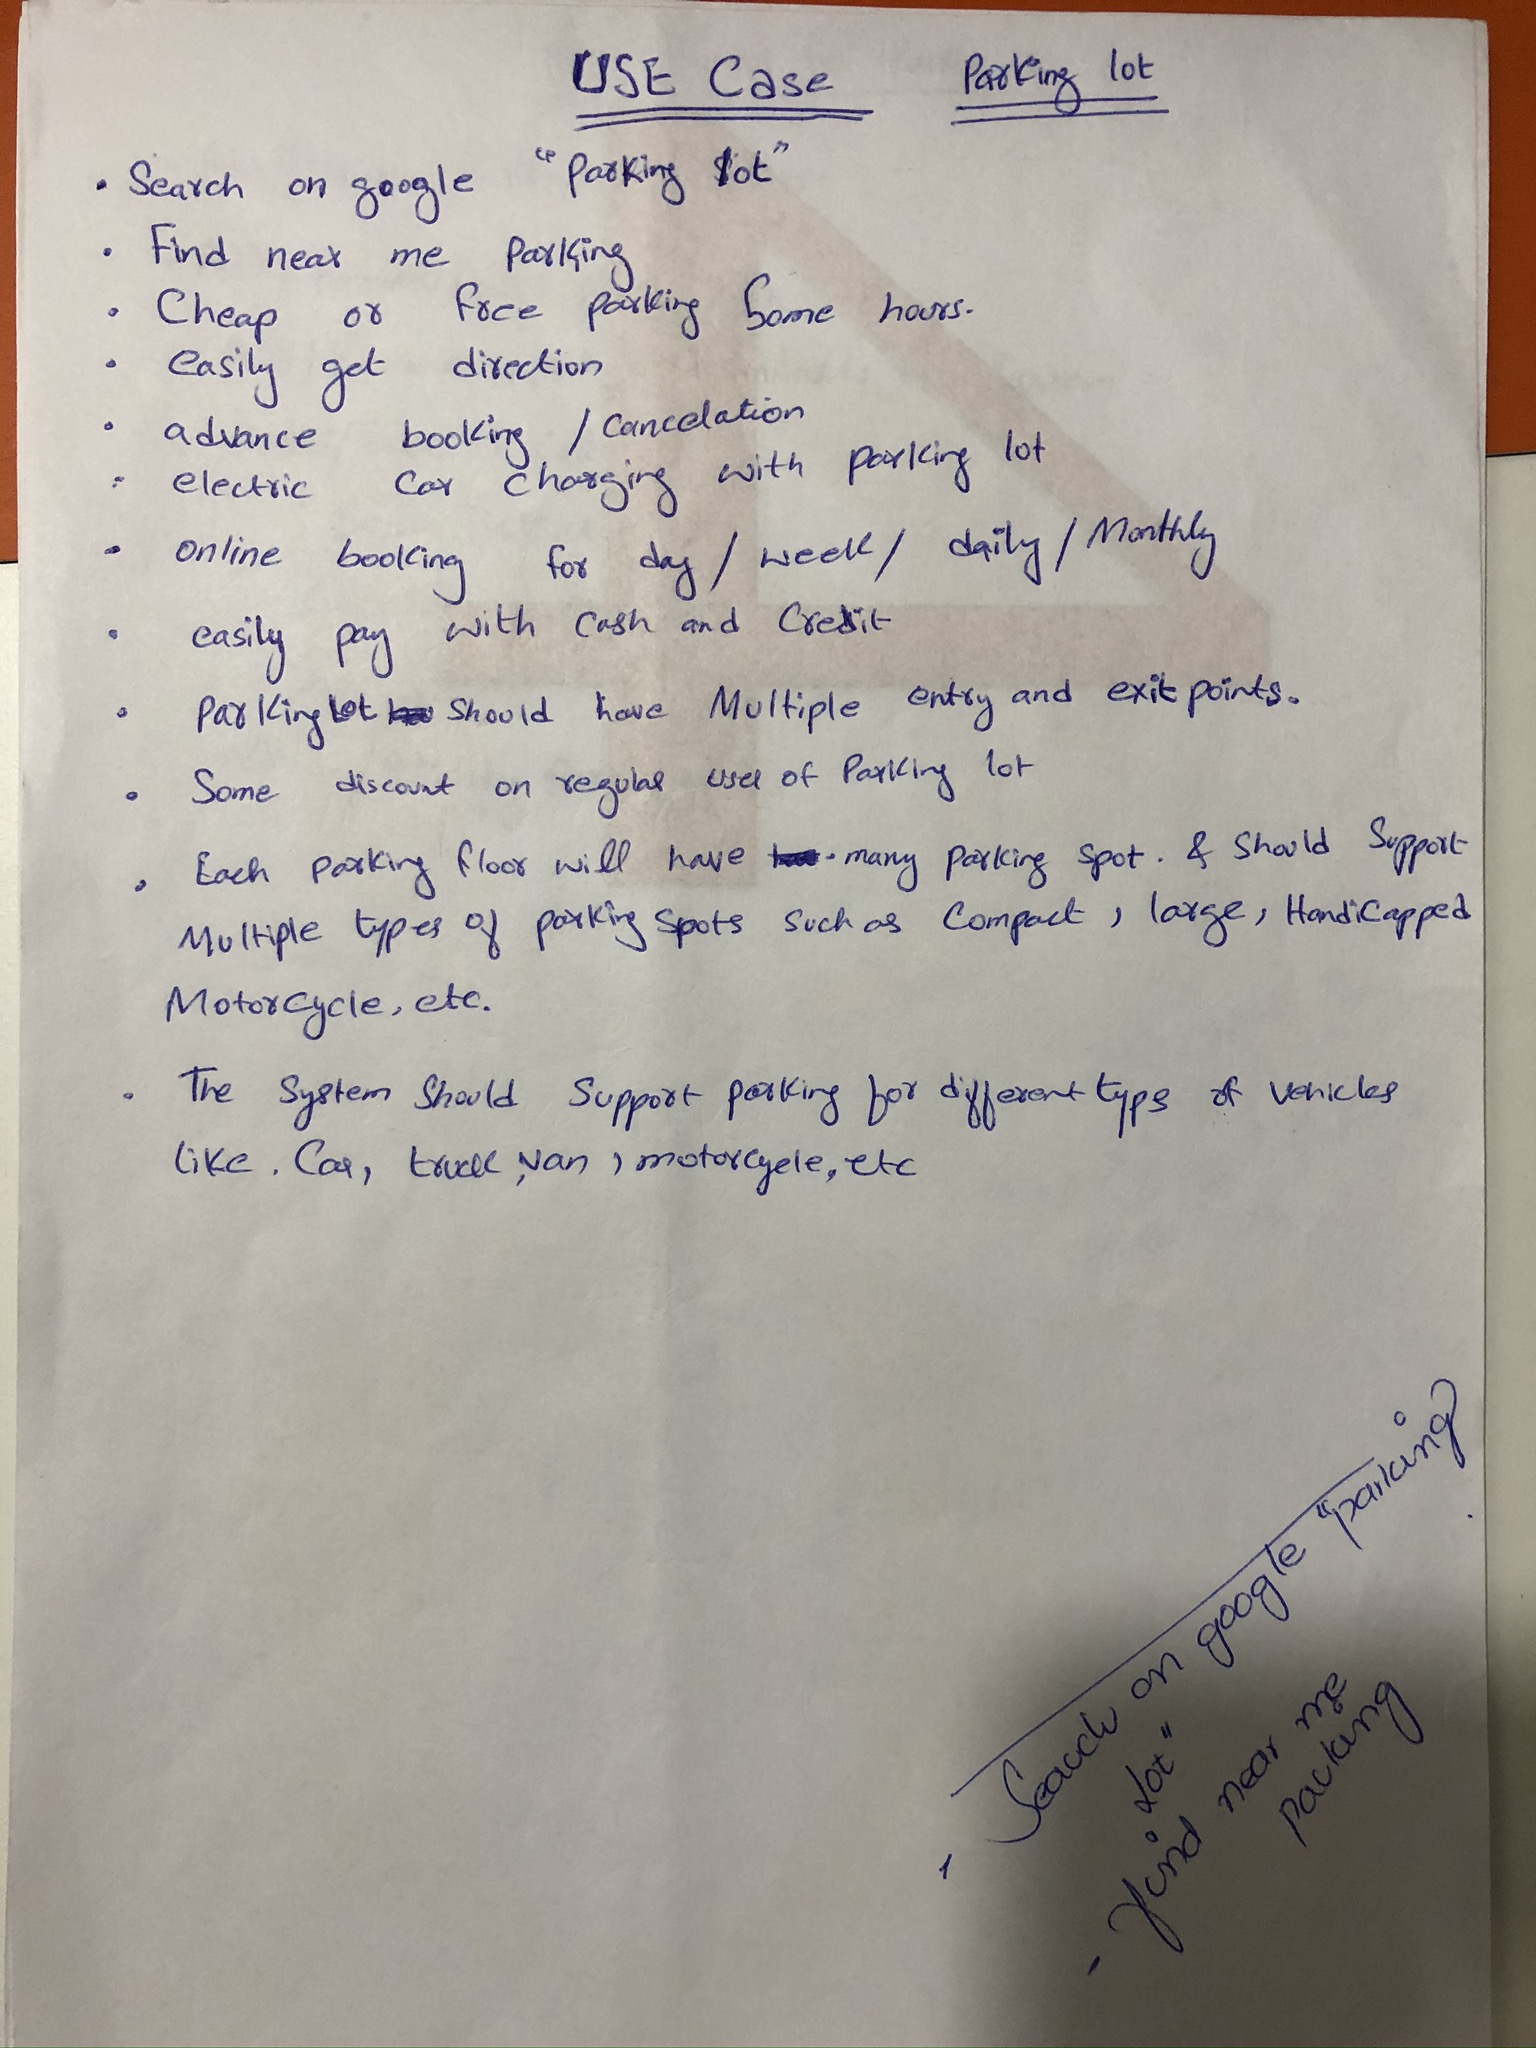 USE Case Parking lot
• Search on google "Parking lot"
• Find near me Parking
• Cheap or free parking Some hours.
• easily get direction
• advance booking / Cancelation
• electric Car charging with parking lot
• online booking for day / week / daily / Monthly
• easily pay with Cash and Credit
• Parking lot should have Multiple entry and exit points.
• Some discount on regular use of Parking lot
• Each parking floor will have many parking spot. & Should Support
Multiple types of parking spots such as Compact, large, Handicapped
Motorcycle, etc.
• The System Should Support parking for different typs of vehicles
like. Car, truck, van, motorcycle, etc
- Search on google "parking
lot"
- find near me
parking